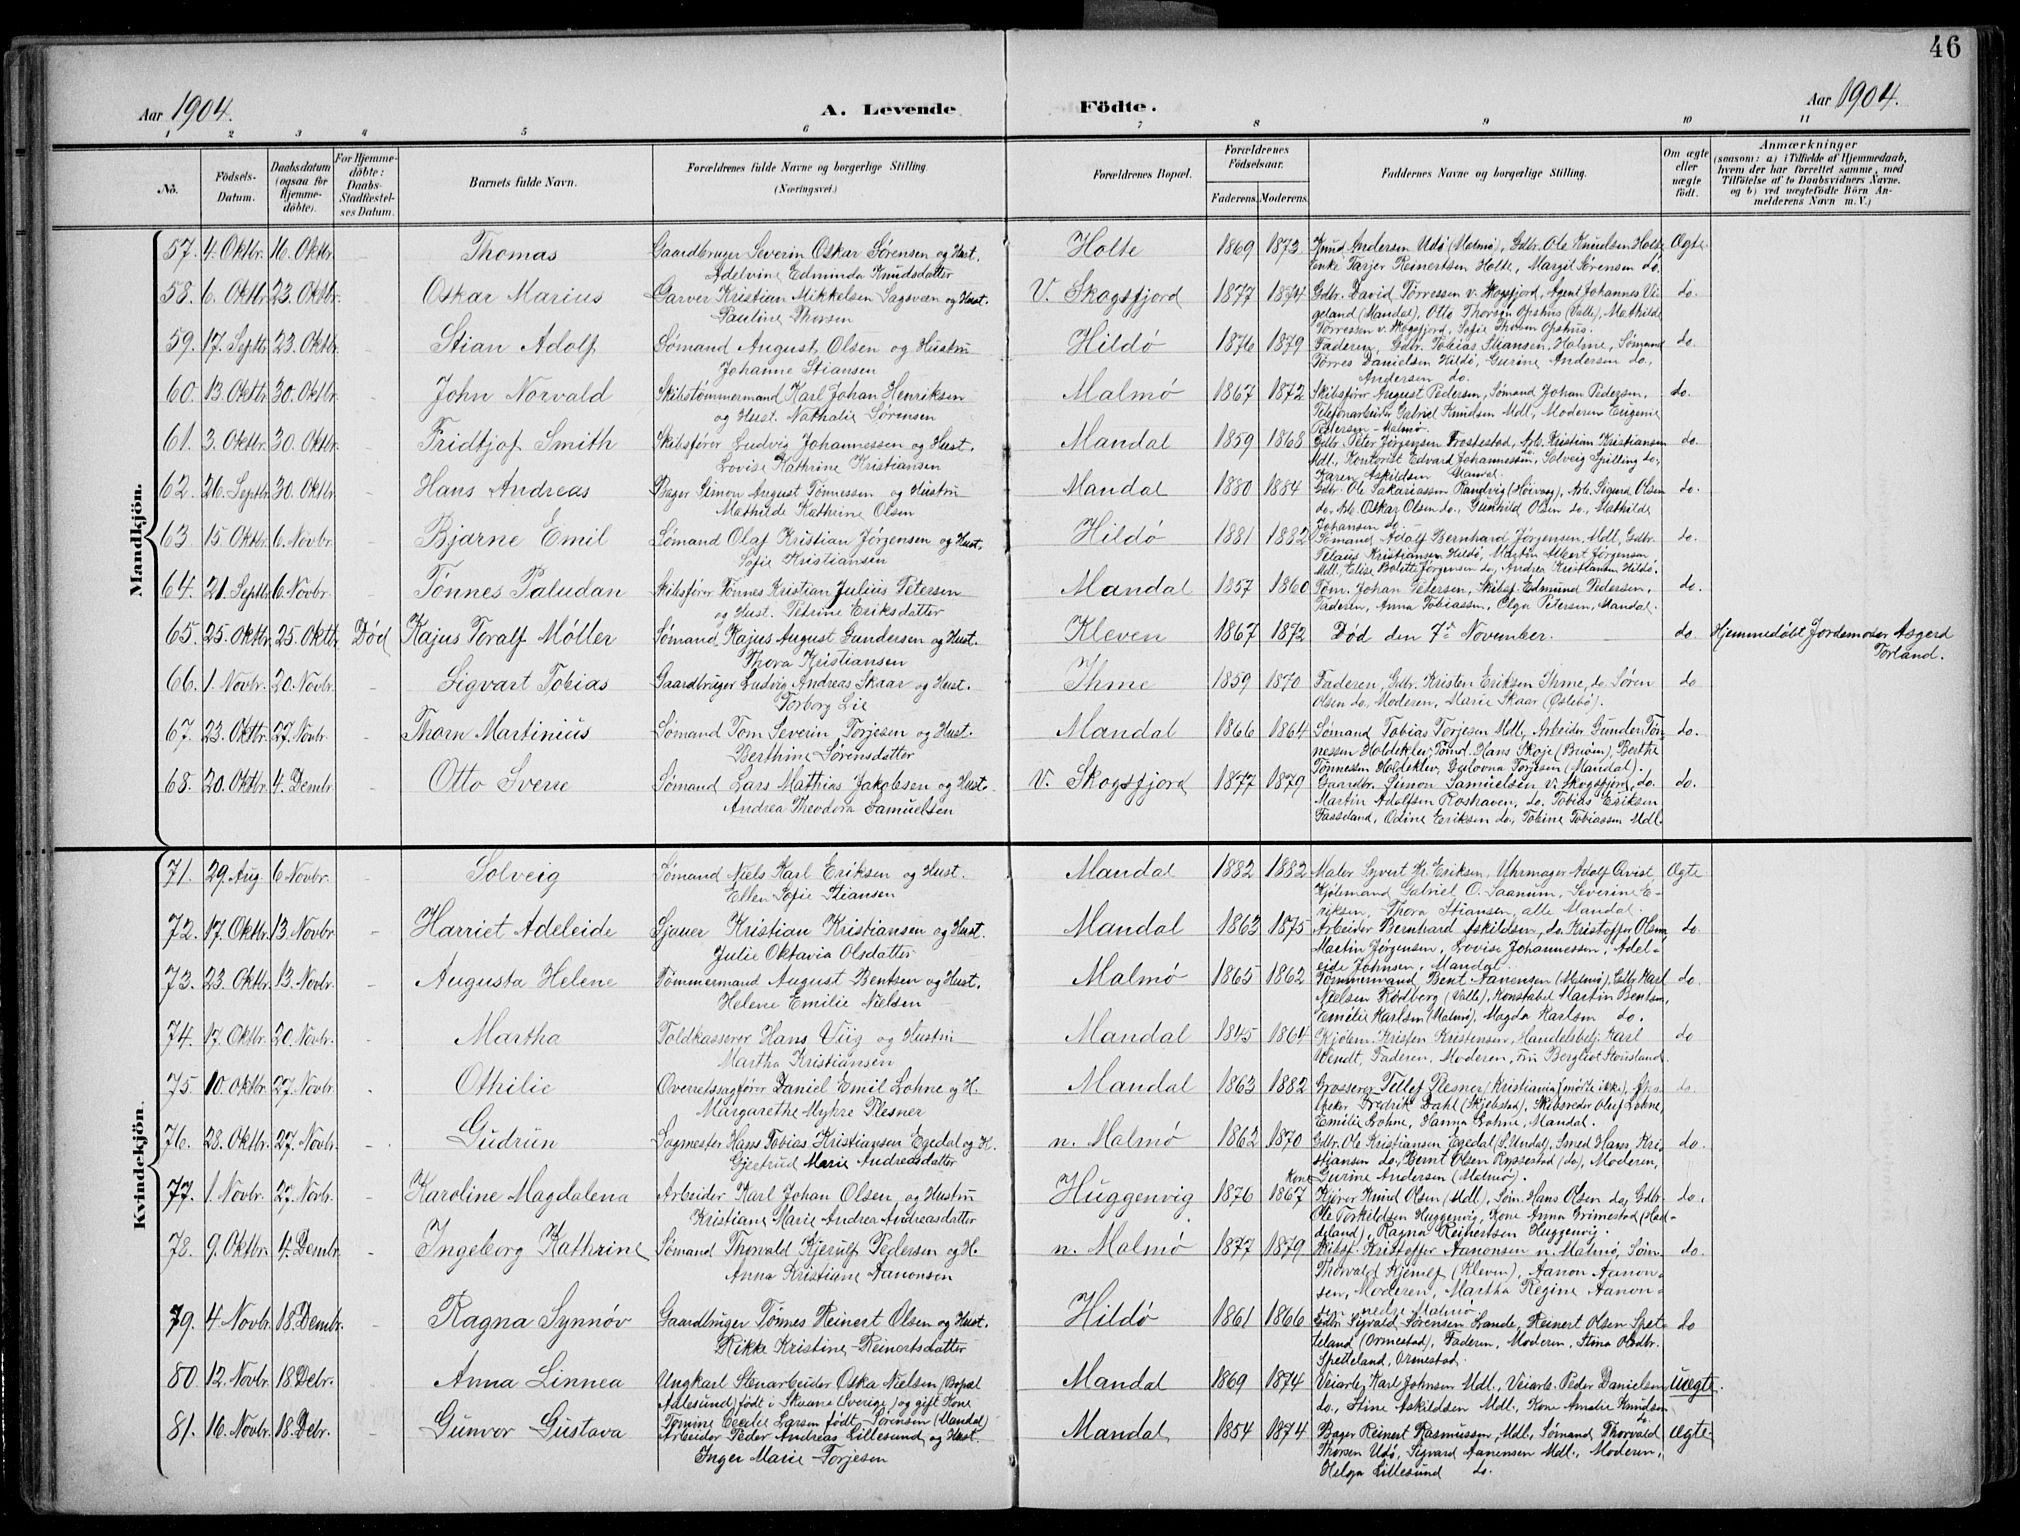 46
Aar 1904. A. Levende Födte. Aar 1904.
1 2 3 4 5 6 7 8 9 10 11
No. Födsels-Datum. Daabsdatum (ogsaa for Hjemme-döbte). For Hjemme-döbte: Daabs-Stadfestel-ses Datum. Barnets fulde Navn. Forældrenes fulde Navne og borgerlige Stilling. (Næringsvei.) Forældrenes Bopæl. Forældrenes Födselsaar. Faderens. Moderens. Faddernes Navne og borgerlige Stilling. Om ægte eller uægte födt. Anmærkninger (saasom: a) i Tilfælde af Hjemmedaab, hvem der har forrettet samme, med Tilföielse af to Daabsvidners Navne, og b) ved uægtefödte Börn An-melderens Navn m. V.)
Mandkjön.
57. 4. Oktbr. 16. Oktbr. Thomas Gaardbruger Severin Oskar Sørensen og Hust. Holte 1869 1873 Knud Andersen Udø (Malmø), Gdbr. Ole Knudsen Holte, Ægte
Adelvine Edminda Knudsdatter Enke Tarjer Reinertsen Holte, Margit Sørensen do.
58. 6. Oktbr. 23. Oktbr. Oskar Marius Garver Kristian Mikkelsen Sagsvæn og Hust. V. Skogsfjord 1877 1874 Gdbr. David Tørressen v. Skogsfjord, Agent Johannes Vi- do.
Pauline Thorsen geland (Mandal), Otto Thorsen Opshus (Valle), Mathilde
Tørressen v. Skogsfjord, Sofie Thorsen Opshus.
59. 17. Septbr. 23. Oktbr. Stian Adolf Sømand August Olsen og Hustru Hildø 1876 1879 Faderen, Gdbr. Tobias Stiansen Holme, Sømand do.
Johanne Stiansen Tørres Danielsen Hildø, Gurine Andersen do,
Andersen do.
60. 13. Oktbr. 30. Oktbr. John Norvald Skibstømmermand Karl Johan Henriksen Malmø 1867 1872 Skibsfør. August Pedersen, Sømand Johan Pedersen, do.
og Hust. Nathalie Sørensen Telefonarbeider Gabriel Knudsen Mdl, Moderen Eugenie
Petersen - Malmø.
61. 3. Oktbr. 30. Oktbr. Fridtjof Smith Skibsfører Ludvig Johannessen og Hust. Mandal 1859 1868 Gdbr. Peter Jørgensen Frostestad, Arb. Kristian Kristiansen do.
Lovise Kathrine Kristiansen Mdl., Kontorist Edvard Johannessen, Solveig Spilling do.,
Karen Askildsen Mandal.
62. 26. Septbr. 30. Oktbr. Hans Andreas Bager Simon August Tønnessen og Hustru Mandal 1880 1884 Gdbr. Ole Sakariassen Randvig (Høivaag), Arb. Sigurd Olsen do.
Mathilde Kathrine Olsen do, Arb. Oskar Olsen do, Gunhild Olsen do, Mathilde
Johansen do.
63. 15. Oktbr. 6. Novbr. Bjarne Emil Sømand Olaf Kristian Jørgensen og Hust. Hildø 1881 1882 Sømand Adolf Bernhard Jørgensen, Mdl, Gdbr. do.
Sofie Kristiansen Pelaus Kristiansen Hildø, Martin Albert Jørgensen
Mdl, Elise Bolette Jørgensen do, Andrea Kristiansen Hildø.
64. 21. Septbr. 6. Novbr. Tønnes Paludan Skibsfører Tønnes Kristian Julius Petersen Mandal 1857 1860 Tøm. Johan Petersen, Skibsf. Edmund Pedersen, do.
og Hust. Petrine Eriksdatter Faderen, Anna Tobiassen, Olga Petersen, Mandal.
65. 25. Oktbr. 25. Oktbr. Død Kajus Toralf Møller Sømand Kajus August Gundersen og Hust. Kleven 1867 1872 Død den 7de November. do. Hjemmedøbt Jordemoder Asgerd
Thora Kristiansen Torland.
66. 1. Novbr. 20. Novbr. Sigvart Tobias Gaardbruger Ludvig Andreas Skaar og Hust. Ihme 1859 1870 Faderen, Gdbr. Kristen Eriksen Ihme, do. Søren do
Torborg Lie Olsen do, Moderen, Marie Skaar (Øslebø).
67. 23. Oktbr. 27. Novbr. Thorn Martinius Sømand Tom Severin Torjesen og Hust. Mandal 1866 1864 Sømand Tobias Torjesen Mdl, Arbeider Gunder Tøn- do.
Berthine Sørensdatter nessen Holdeklev, Tømd. Hans Skoje (Buøen), Berthe
Tønnessen Holdeklev, Galovna Torjesen (Mandal).
68. 20. Oktbr. 4. Dembr. Otto Sverre Sømand Lars Mathias Jakobsen og Hust. V. Skogsfjord 1877 1879 Gaardbr. Simon Samuelsen v. Skogsfjord, do. do.
Andrea Theodora Samuelsen Martin Adolfsen Roshaven, do. Tobias Eriksen
Fasseland, Odine Eriksen do, Tobine Tobiassen Mdl.
Kvindekjön.
71. 29. Aug. 6. Novbr. Solveig Sømand Niels Karl Eriksen og Hust. Mandal 1882 1882 Maler Syvert Kr. Eriksen, Uhrmager Adolf Qvist Ægte
Ellen Sofie Stiansen Kjølemand Gabriel O. Saanum, Severine E-
riksen, Thora Stiansen, alle Mandal.
72. 17. Oktbr. 13. Novbr. Harriet Adeleide Sjauer Kristian Kristiansen og Hust. Mandal 1863 1875 Arbeider Bernhard Askildsen, do. Kristoffer Olsen, do.
Julie Oktavia Olsdatter Martin Jørgensen, Lovise Johannessen, Adel-
eide Johnsen, Mandal.
73. 23. Oktbr. 13. Novbr. Augusta Helene Tømmermand August Bentsen og Hust. Malmø 1865 1862 Tømmermand Bent Aanensen (Malmø), Gdbr. Karl do.
Helene Emilie Nielsen Nielsen Rødberg (Valle), Konstabel Martin Bentsen,
Emilie Karlsen (Malmø), Magda Karlsen do.
74. 17. Oktbr. 20. Novbr. Martha Toldkasserer Hans Viig og Hustru Mandal 1845 1864 Kjølem. Kristen Kristensen, Handelsbetj. Karl do
Martha Kristiansen Wendt, Faderen, Moderen, Fru Bergliot Stousland.
75. 10. Oktbr. 27. Novbr. Othilie Overretssagfører Daniel Emil Lohne og H. Mandal 1863 1882 Grosserer Tellef Plesner (Kristiania) mødte ikke), Apo- do.
Margarethe Myhre Plesner theker Fredrik Dahl (Skjebstad), Skibsreder Oluf Lohne,
Emilie Lohne, Hanna Lohne, Mandal.
76. 28. Oktbr. 27. Novbr. Gudrun Sagmester Hans Tobias Kristiansen Egedal og H. n. Malmø 1862 1870 Gdbr. Ole Kristiansen Egedal (S. Undal), Smed Hans Kri- do.
Gjertrud Marie Andreasdatter stiansen do, Bernt Olsen Ryssestad (do), Moderen,
Kone Gurine Andersen (Malmø).
77. 1. Novbr. 27. Novbr. Karoline Magdalena Arbeider Karl Johan Olsen og Hustru Huggenvig 1876 1867 Kjører Knud Olsen (Mdl), Søm. Hans Olsen do, Gdbr. do.
Kristiane Marie Andrea Andreasdatter Ole Torkildsen Huggenvig, Kone Anna Grimestad (Had-
deland), Ragna Reinertsen Huggenvig.
78. 9. Oktbr. 4. Dembr. Ingeborg Kathrine Sømand Thorvald Kjerulf Pedersen og H. n. Malmø 1877 1879 Skibsf. Kristoffer Aanonsen n. Malmø, Søm. do.
Anna Kristiane Aanonsen Thorvald Kjerulf (Kleven), Aanon Aanon-
sen, Moderen, Martha Regine Aanon-
sen nedre Malmø.
79. 4. Novbr. 18. Dembr. Ragna Synnøv Gaardbruger Tønnes Reinert Olsen og Hust. Hildø 1861 1866 Gdbr. Sigvald Sørensen Lande, Reinert Olsen Spet- do
Rikke Kristine Reinertsdatter teland (Ormestad), Faderen, Moderen, Stina Olsdtr.
Spetteland, Ormestad.
80. 12. Novbr. 18. Debr. Anna Linnea Ungkarl Stenarbeider Oska Nielsen (Bopæl Mandal 1869 1874 Veiarb. Karl Johnsen Mdl., Veiarb. Peder Danielsen Uægte.
Adlesund) født i Skaane Sverige) og gift Kone do., Stine Askildsen Mdl, Kone Amalie Knudsen
Tomine Cecilie Larsen født Sørensen (Mandal) do.
81. 16. Novbr. 18. Debr. Gunvor Gustava Arbeider Peder Andreas Lillesund og Hust. Mandal 1854 1874 Bager Reinert Rasmussen, Mdl., Sømand Thorvald Ægte
Inger Marie Torjesen Thorsen Udø, Sigvard Aanensen Mdl., Moderen,
Helga Lillesund do.